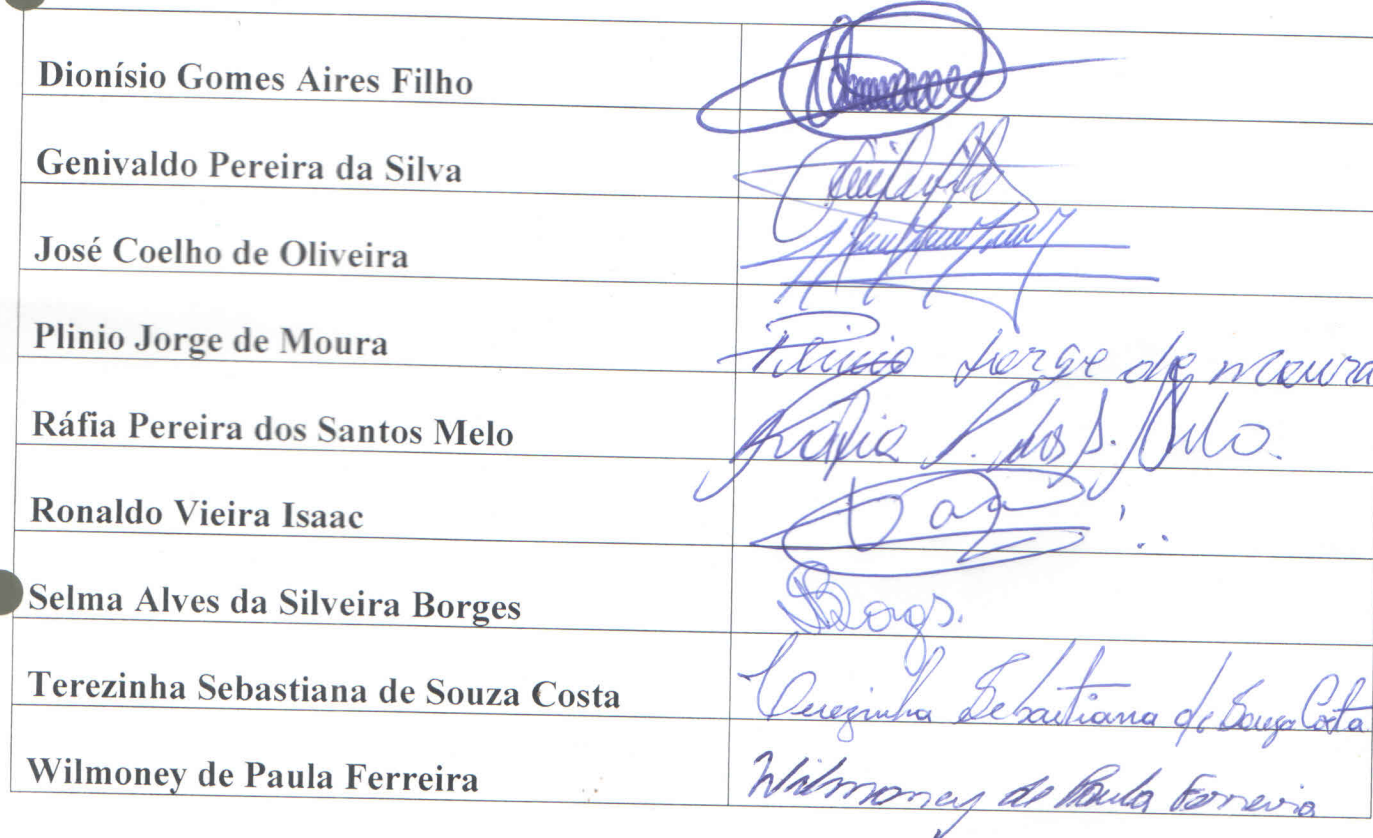 Dionísio Gomes Aires Filho
Genivaldo Pereira da Silva
José Coelho de Oliveira
Plinio Jorge de Moura Plinio Jorge de moura
Ráfia Pereira dos Santos Melo Ráfia P. dos S. Melo.
Ronaldo Vieira Isaac
Selma Alves da Silveira Borges
Terezinha Sebastiana de Souza Costa Terezinha Sebastiana de Souza Costa
Wilmoney de Paula Ferreira Wilmoney de Paula Ferreira